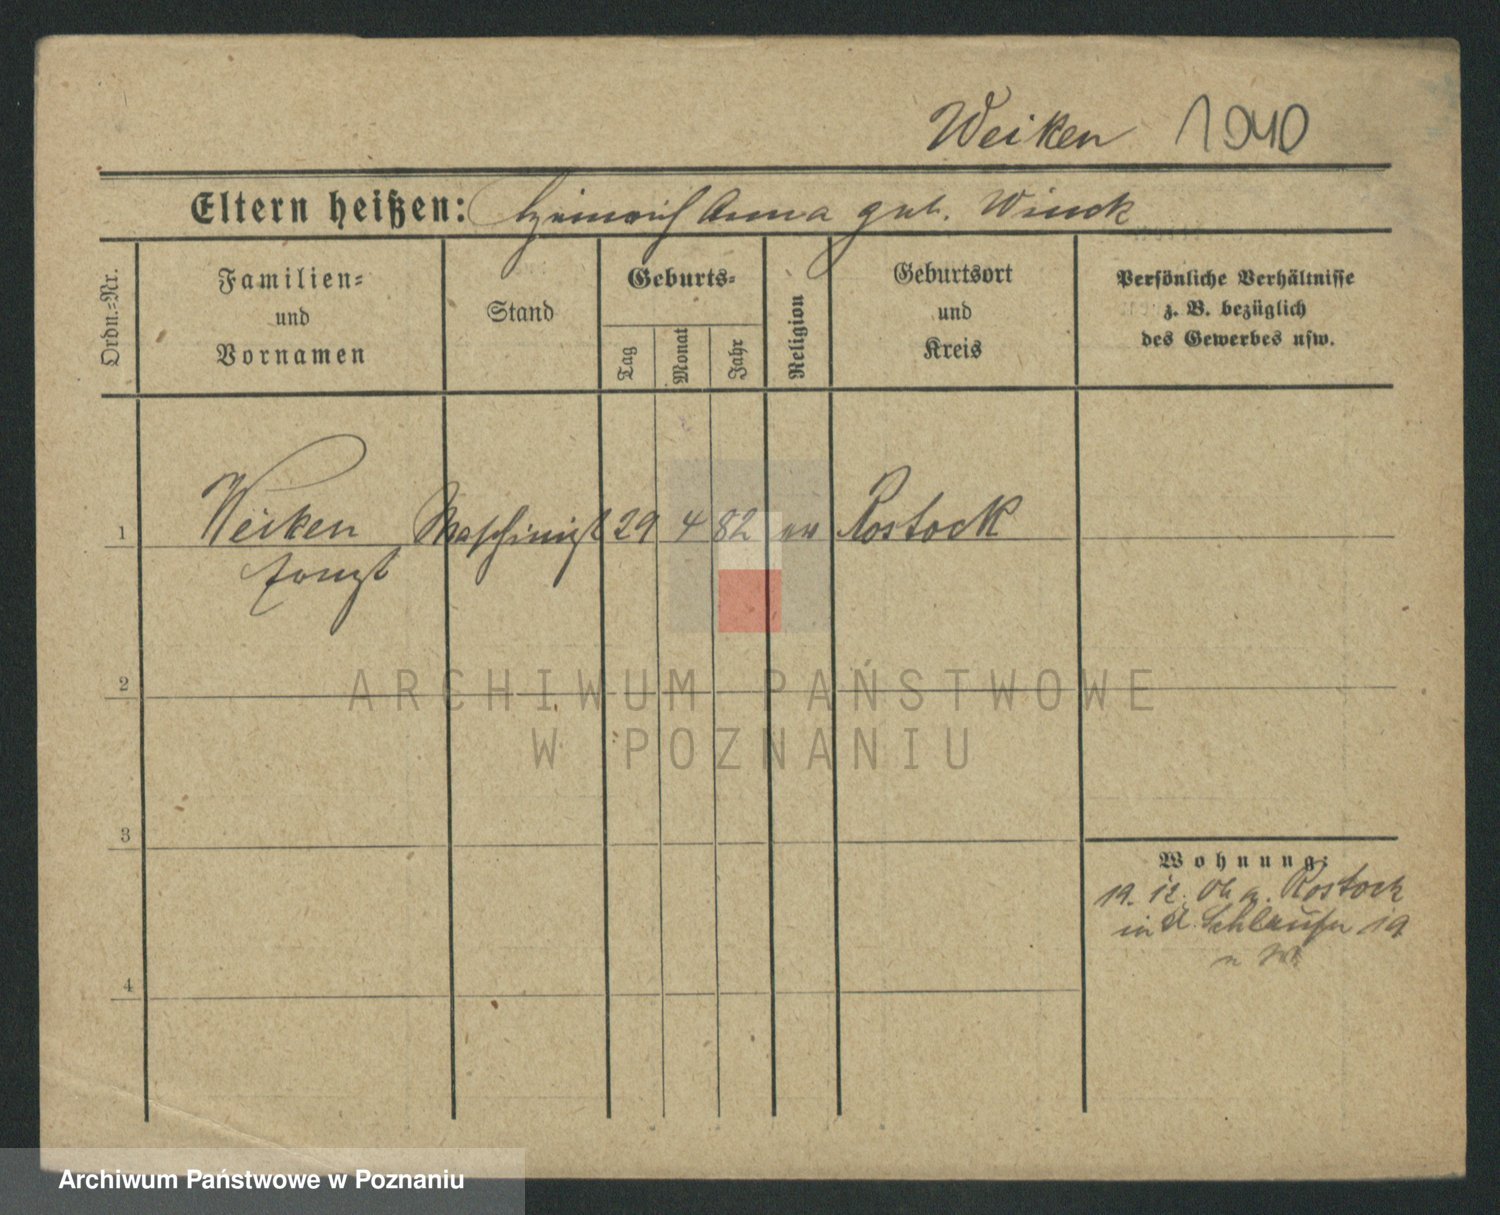 Weiken 1940
Eltern heißen: Heinrich Anna geb. Winck
Ordn.-Nr.
Familien-
und
Vornamen
Stand
Geburts-
Tag
Monat
Jahr
Religion
Geburtsort
und
Kreis
Persönliche Verhältnisse
z. B. bezüglich
des Gewerbes usw.
1
Weiken Maschinist 29 4 82 ev Rostock
2
3
4
Wohnung:
19. 12. Rostock
in 19
ARCHIWUM PAŃSTWOWE
W POZNANIU
Archiwum Państwowe w Poznaniu